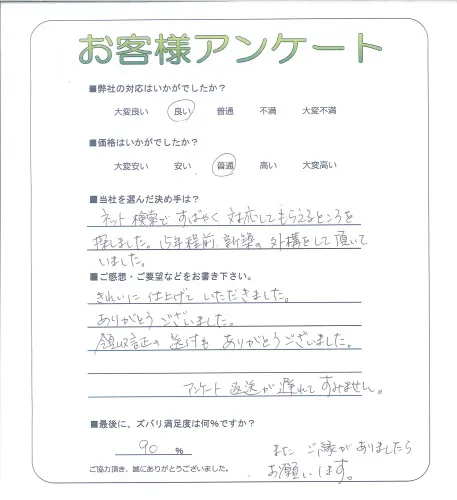 お客様アンケート
■弊社の対応はいかがでしたか？
大変良い 良い 普通 不満 大変不満
■価格はいかがでしたか？
大変安い 安い 普通 高い 大変高い
■当社を選んだ決め手は？
ネット検索で すばやく 対応してもらえるところを
探しました。15年程前 新築の 外構をして頂いて
いました。
■ご感想・ご要望などをお書き下さい。
きれいに 仕上げて いただきました。
ありがとうございました。
領収証の 送付も ありがとうございました。
アンケート 返送が遅れて すみません。
■最後に、ズバリ満足度は何%ですか？
90 %
また ご縁がありましたら
お願いします。
ご協力頂き、誠にありがとうございました。